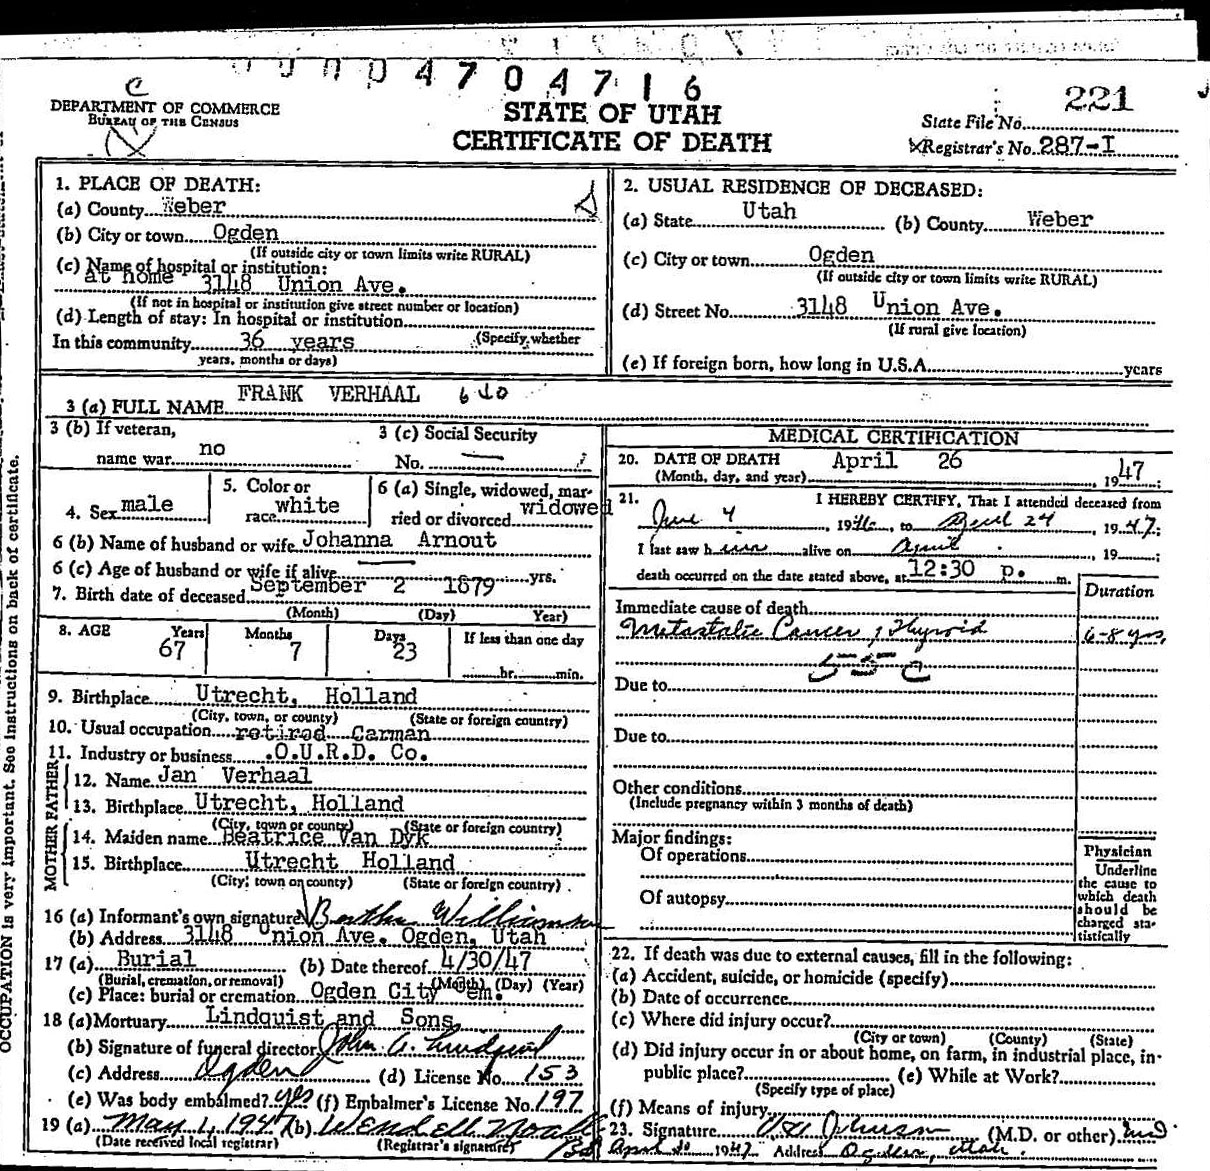 0000 4704716
C
DEPARTMENT OF COMMERCE
BUREAU OF THE CENSUS
STATE OF UTAH
CERTIFICATE OF DEATH
221
State File No.
Registrar's No. 287-I
1. PLACE OF DEATH:
(a) County Weber
(b) City or town Ogden
(If outside city or town limits write RURAL)
(c) Name of hospital or institution:
at home 3148 Union Ave.
(If not in hospital or institution give street number or location)
(d) Length of stay: In hospital or institution
In this community 36 years (Specify whether
years, months or days)
2. USUAL RESIDENCE OF DECEASED:
(a) State Utah (b) County Weber
(c) City or town Ogden
(If outside city or town limits write RURAL)
(d) Street No. 3148 Union Ave.
(If rural give location)
(e) If foreign born, how long in U.S.A. years
3 (a) FULL NAME FRANK VERHAAL
3 (b) If veteran,
name war no
3 (c) Social Security
No. —
4. Sex male
5. Color or
race white
6 (a) Single, widowed, mar-
ried or divorced widowed
6 (b) Name of husband or wife Johanna Arnout
6 (c) Age of husband or wife if alive — yrs.
7. Birth date of deceased September 2 1879
(Month) (Day) Year)
8. AGE Years Months Days If less than one day
67 7 23 hr. min.
9. Birthplace Utrecht, Holland
(City, town, or county) (State or foreign country)
10. Usual occupation retired Carman
11. Industry or business O.U.R.D. Co.
FATHER
12. Name Jan Verhaal
13. Birthplace Utrecht, Holland
(City, town or county) (State or foreign country)
MOTHER
14. Maiden name Beatrice Van Dyk
15. Birthplace Utrecht Holland
(City, town or county) (State or foreign country)
16 (a) Informant's own signature Bertha Williamson
(b) Address 3148 Union Ave. Ogden, Utah
17 (a) Burial (b) Date thereof 4/30/47
(Burial, cremation, or removal) (Month) (Day) (Year)
(c) Place: burial or cremation Ogden City Cem.
18 (a) Mortuary Lindquist and Sons
(b) Signature of funeral director John A. Lindquist
(c) Address Ogden (d) License No. 153
(e) Was body embalmed? yes (f) Embalmer's License No. 197
19 (a) May 1, 1947 (b) Wendell
(Date received local registrar) (Registrar's signature)
MEDICAL CERTIFICATION
20. DATE OF DEATH April 26
(Month, day, and year) , 1947:
21. I HEREBY CERTIFY, That I attended deceased from
June 4, 1946, to April 24 1947:
I last saw him alive on April , 19 ;
death occurred on the date stated above, at 12:30 p. m.
Duration
Immediate cause of death
Metastatic Cancer, Thyroid 6-8 yrs.
55c
Due to
Due to
Other conditions
(Include pregnancy within 3 months of death)
Major findings:
Of operations
Of autopsy
Physician
Underline
the cause to
which death
should be
charged sta-
tistically
22. If death was due to external causes, fill in the following:
(a) Accident, suicide, or homicide (specify)
(b) Date of occurrence
(c) Where did injury occur?
(City or town) (County) (State)
(d) Did injury occur in or about home, on farm, in industrial place, in-
public place? (e) While at Work?
(Specify type of place)
(f) Means of injury
23. Signature Johnson (M.D. or other) md
April 1947 Address Ogden, Utah.
OCCUPATION is very important. See instructions on back of certificate.